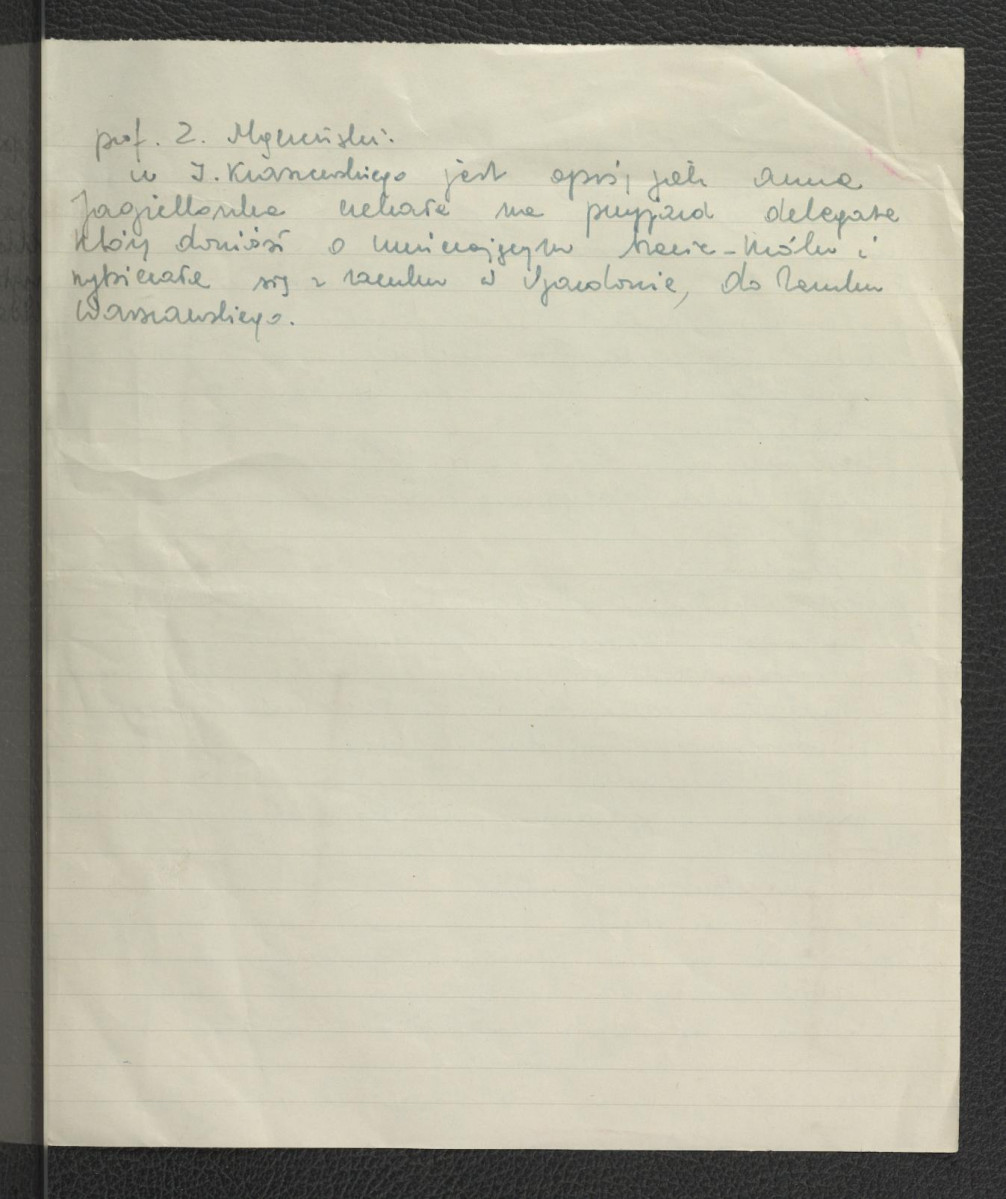 prof. Z. Mączeński:
u J. Kraszewskiego jest opis, jak Anna
Jagiellonka czekała na przyjazd delegata
który doniósł o umierającym bracie-królu i
wybierała się z zamku w Ujazdowie, do Zamku
Warszawskiego.